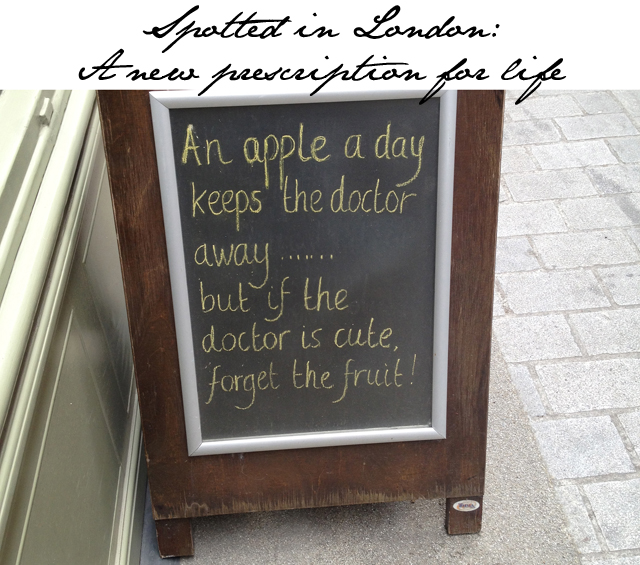 Spotted in London:
A new prescription for life
An apple a day
keeps the doctor
away .......
but if the
doctor is cute,
forget the fruit!